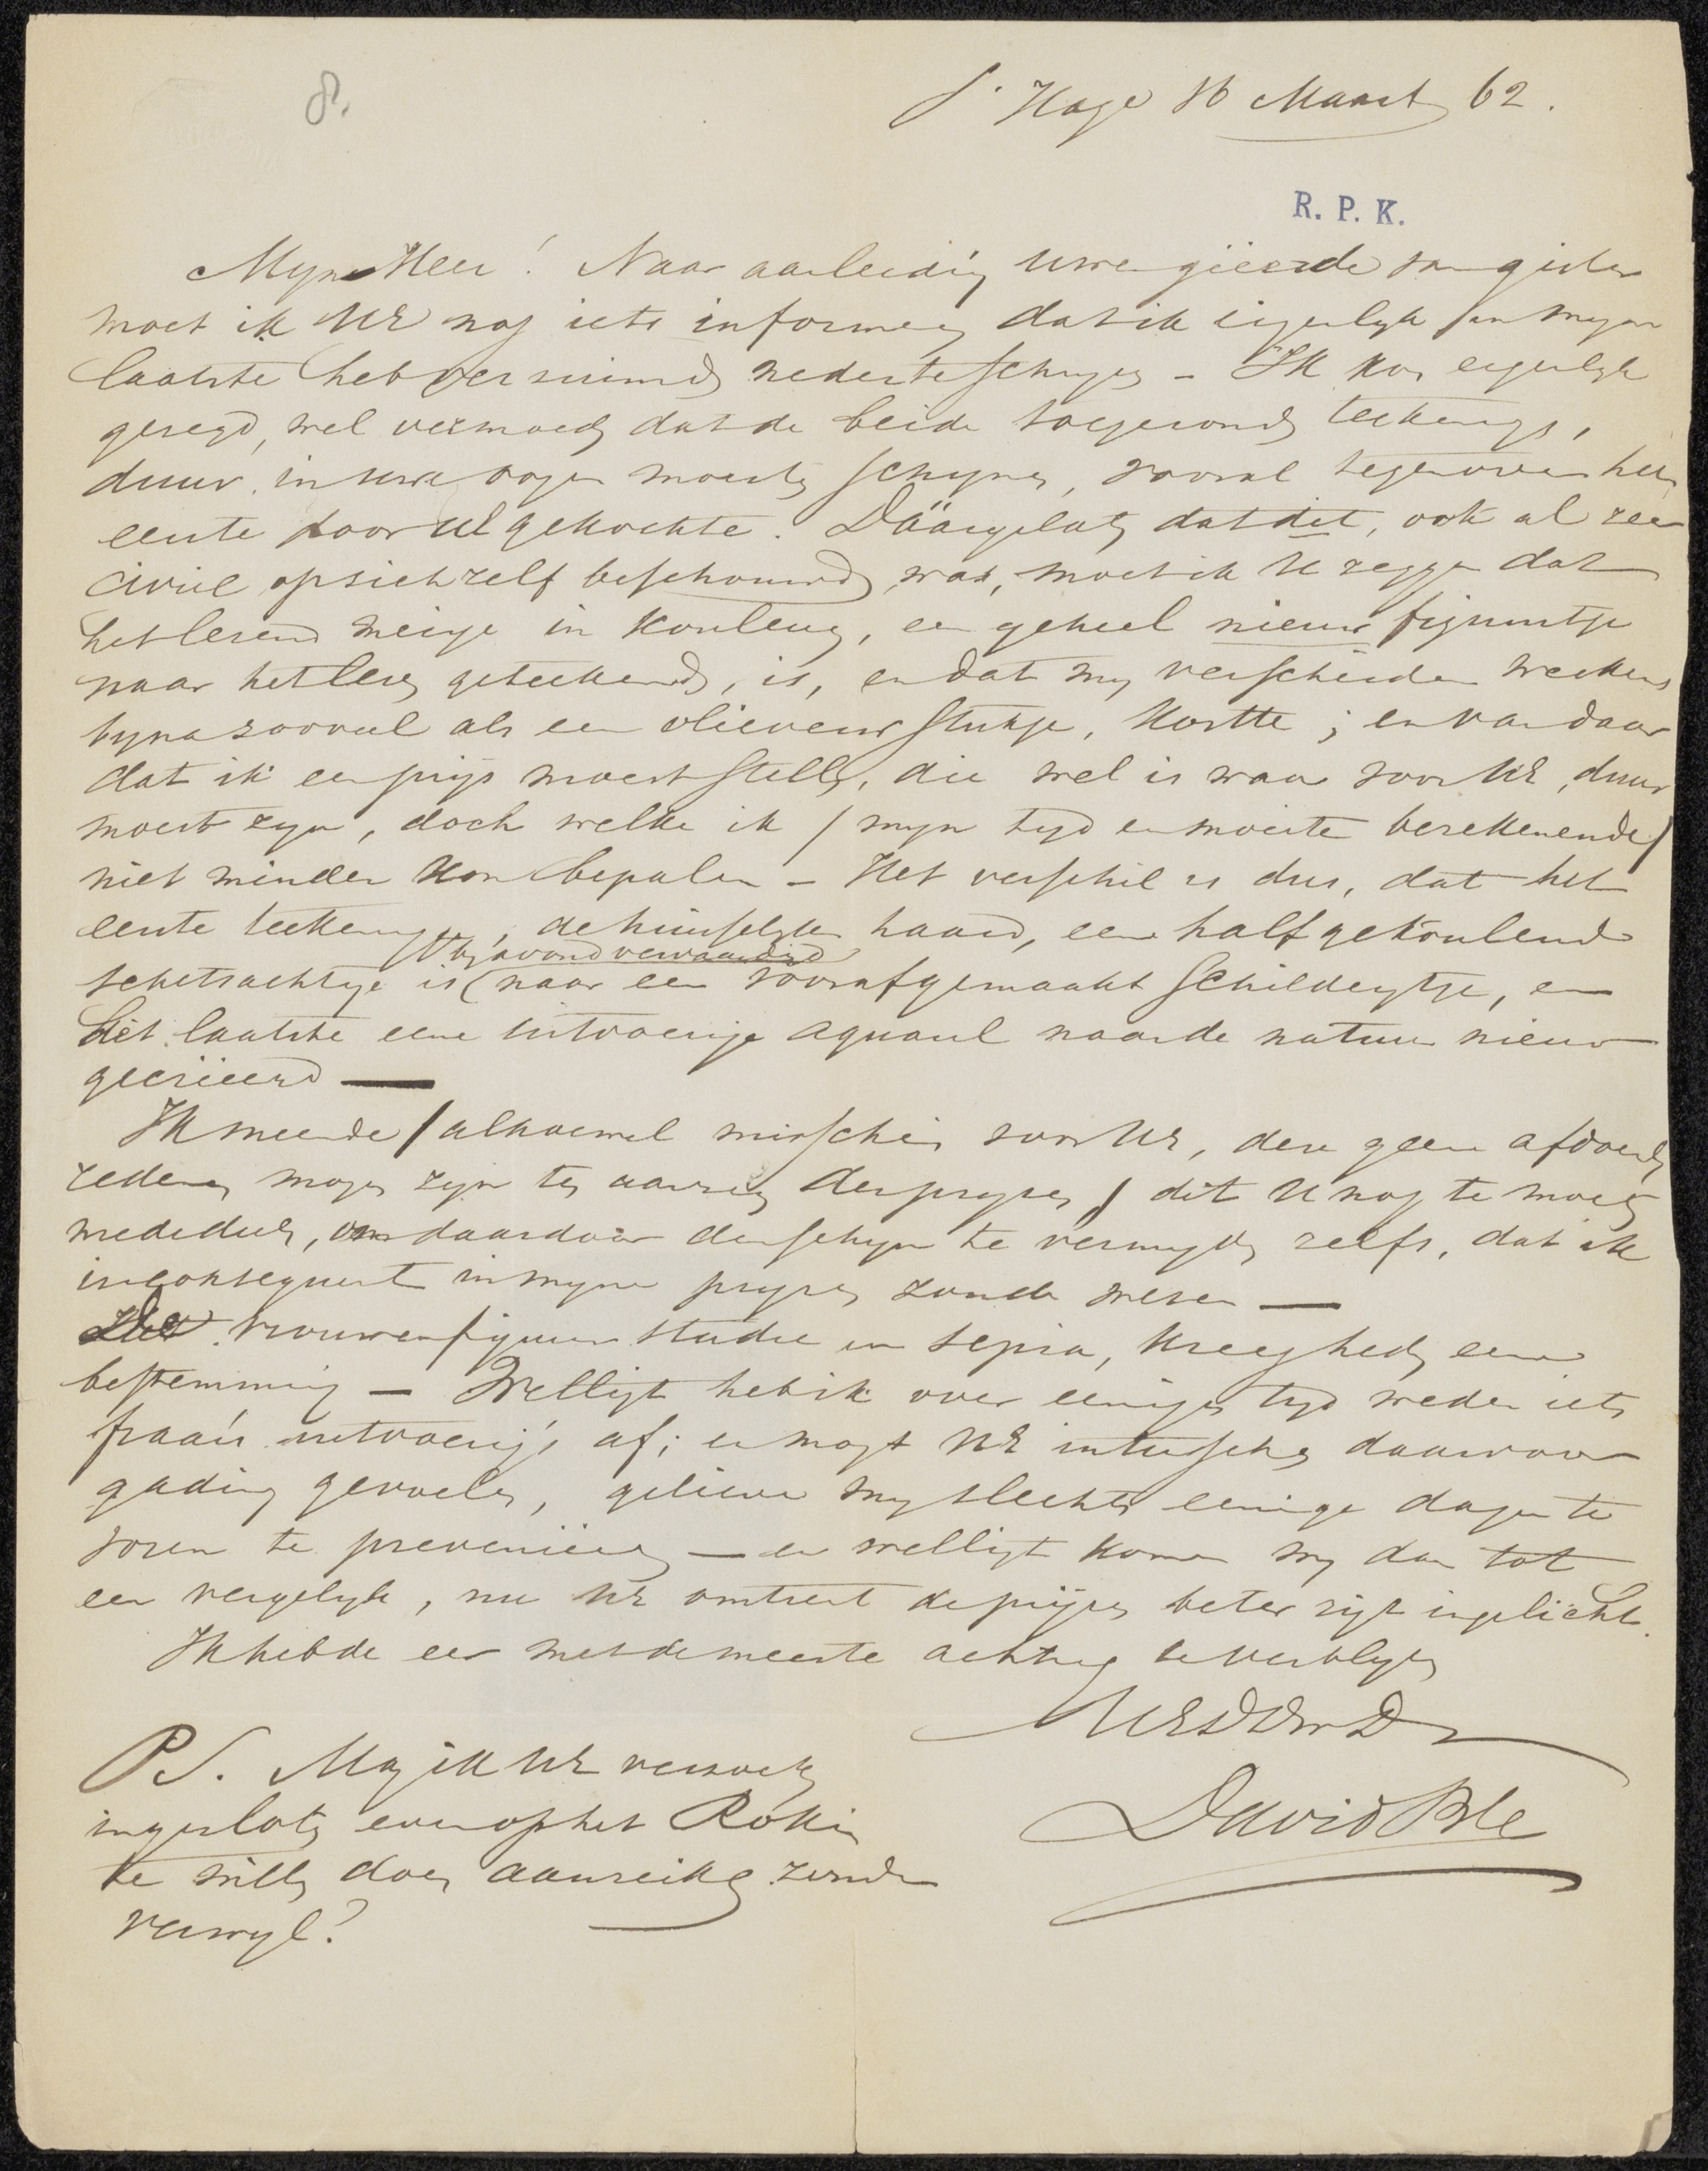 8.
s' Hage 16 Maart 62.
R. P. K.
Myne Heer! Naar aanleiding Uwe geëerde van gister
moet ik UE nog iets informeren dat ik eigenlyk in myn
laatste heb verzuimd neder te schryven - Ik kon eigenlyk
gezegd, wel vermoeden dat de beide toegezonden teekeningen,
duur in uwe oogen moesten schynen, vooral tegenover het
eerste door UE gekochte. Däärgelaten dat dit, ook al zeer
civiel op zich zelf beschouwd, was, moet ik U zeggen dat
het lezend meisje in kouleur, een geheel nieuw figuurtje
naar het leven geteekend, is, en dat my verscheiden weeken
byna zooveel als een olieverw stukje, kostte; en van daar
dat ik een prijs moest stellen, die wel is waar voor UE, duur
moest zyn, doch welke ik / myn tyd en moeite berekenende /
niet minder kon bepalen - Het verschil is dus, dat het
eerste teekeningje, de huiselyke haard, een half gekouleurd
by avond vervaardigd
schetsachtige is (naar een vooraf gemaakt schilderytje, en
dit laatste eene uitvoerige aquarel naar de natuur nieuw
gecrieerd —
Ik meende / alhoewel misschien voor UE, deze geen afdoende
redenen mogen zyn ten aanzien der pryzen / dit U nog te moeten
mededeelen, om daardoor den schyn te vermyden zelfs, dat ik
inconsequent in myne pryzen zoude wezen —
Het vrouwenfiguur studie in sepia, kreeg heden eene
bestemming — Welligt heb ik over eenigen tyd weder iets
fraais uitvoerig's af; en mogt UE intusschen daarvoor
gading gevoelen, gelieve my slechts eenige dagen te
voren te prevenieeren — en welligt komen wy dan tot
een vergelyk, nu UE omtrent de prijzen beter zijt ingelicht.
Ik heb de eer met de meeste achting te verblyven
UEDWD
David Bles
PS. Mag ik UE verzoeken
ingesloten even op het Rokin
te willen doen aanreiken zonder
verwyl?